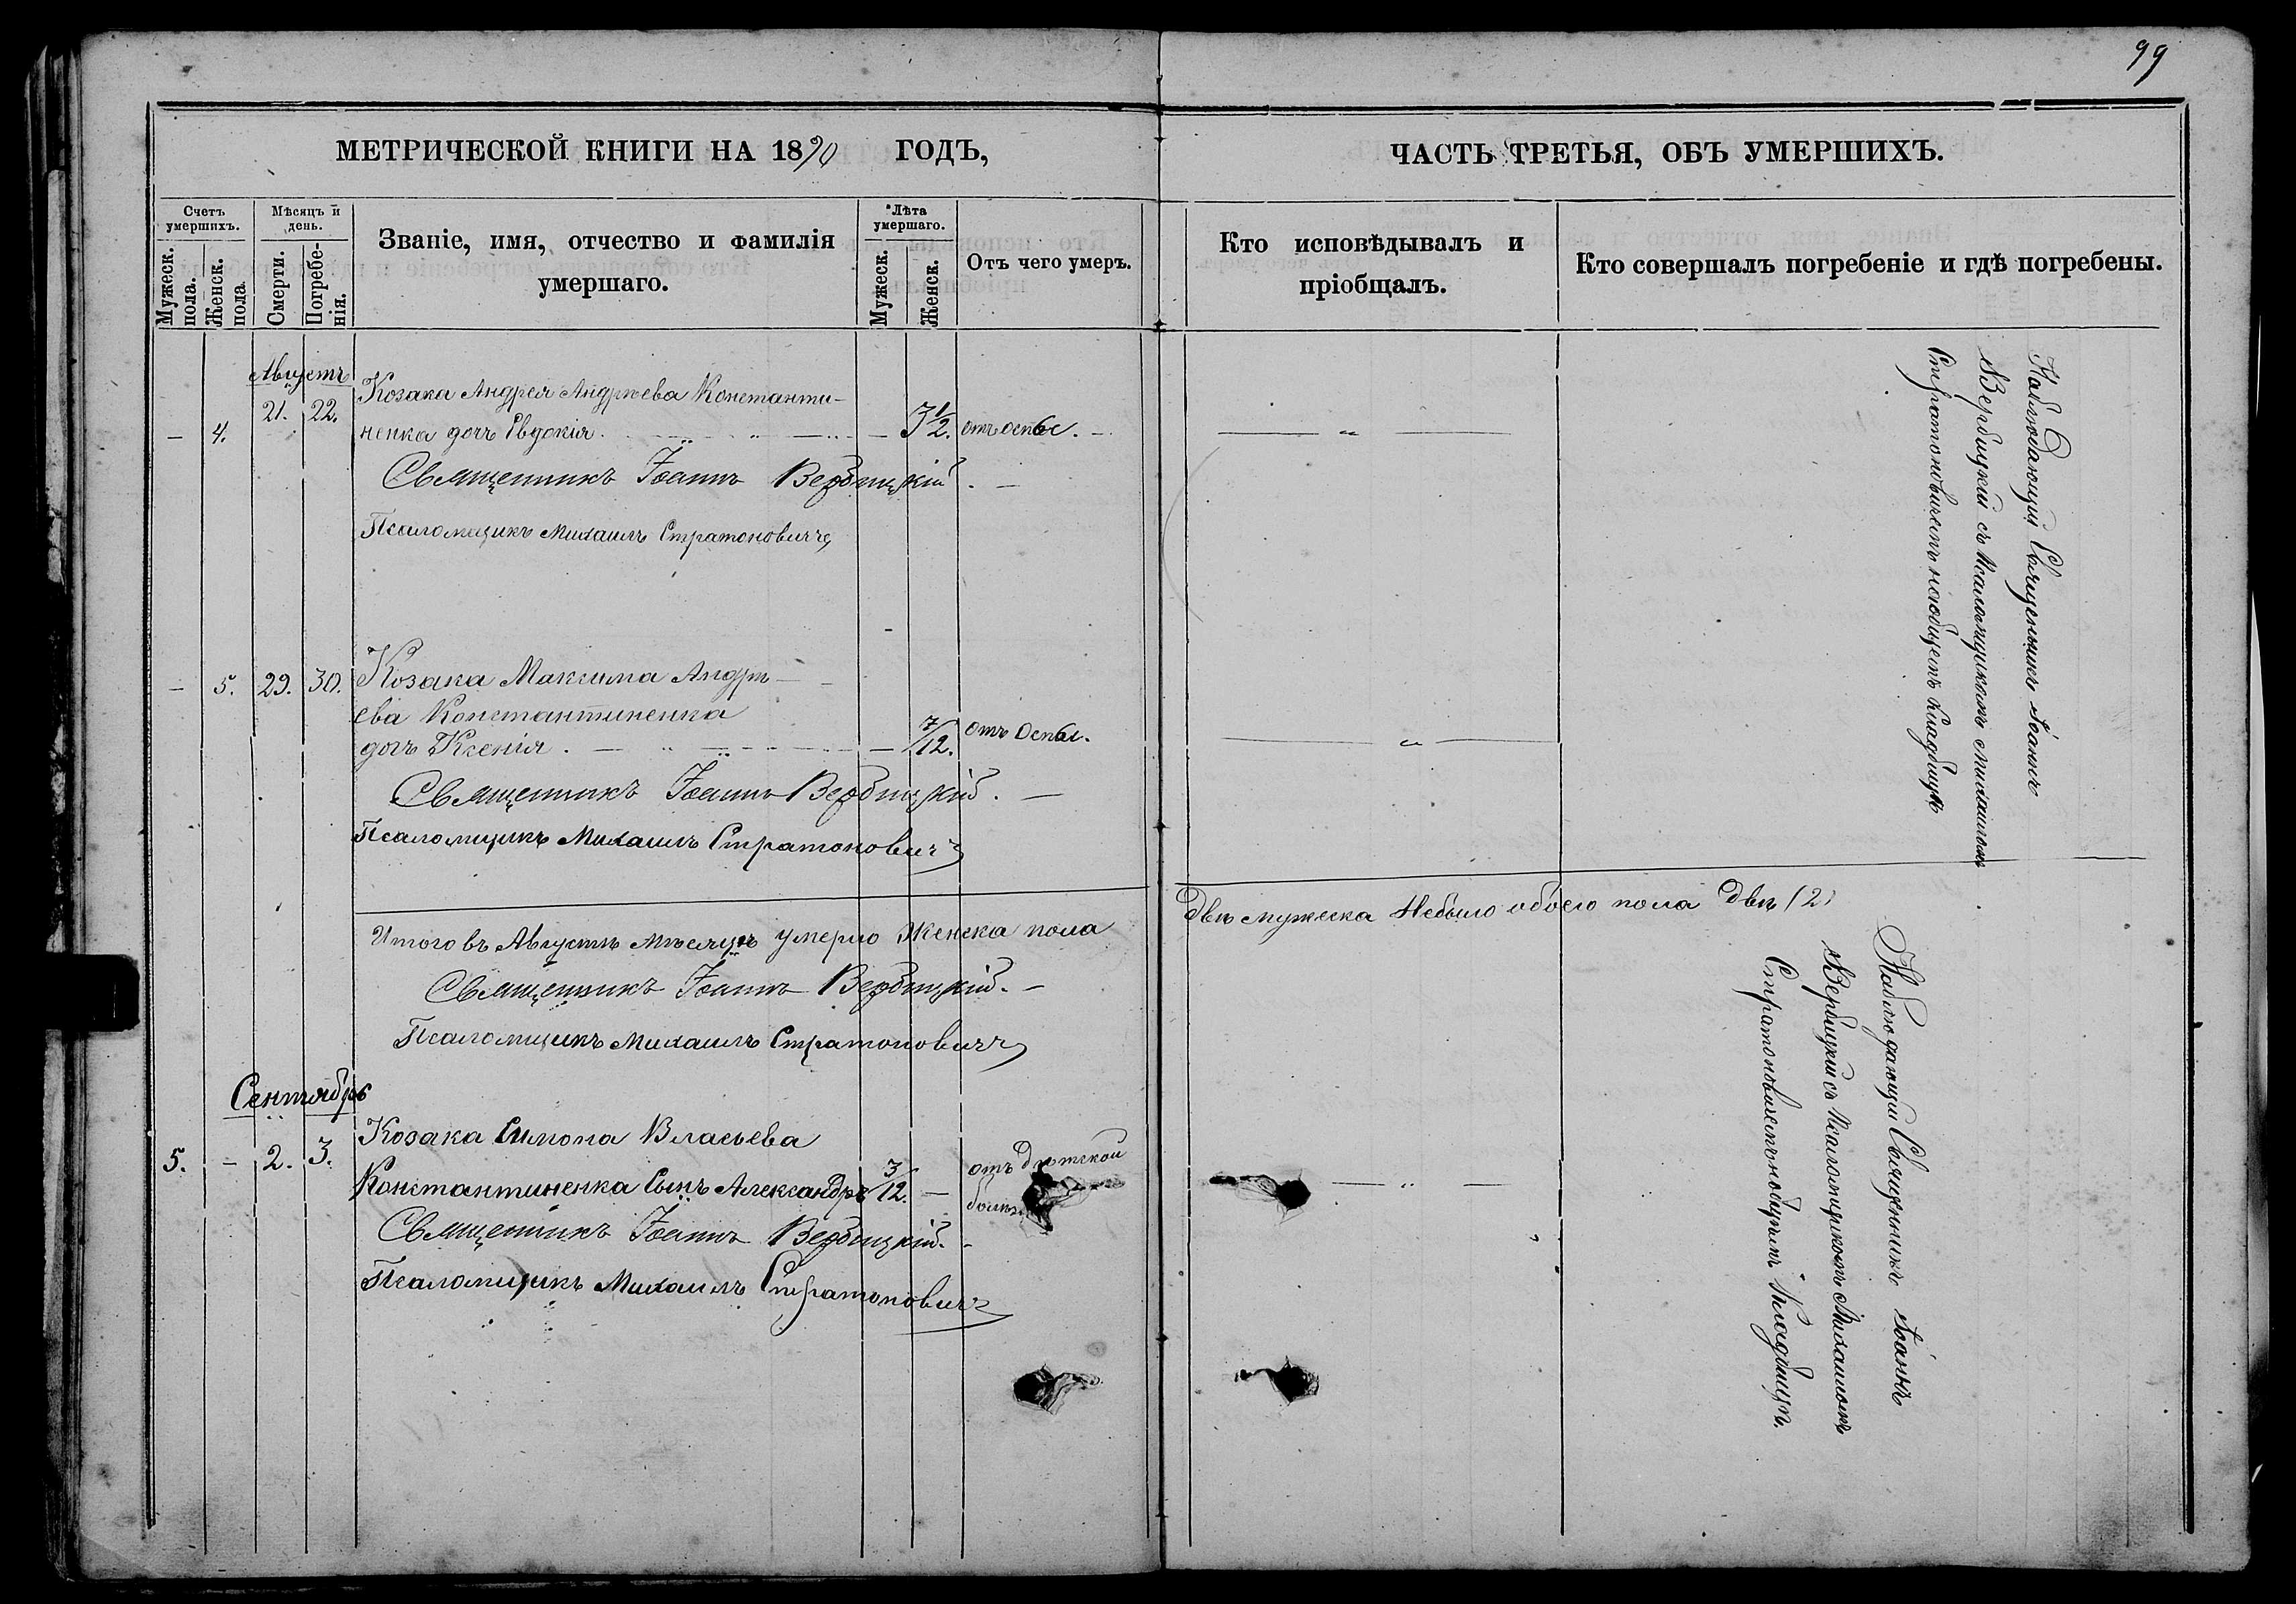 99
МЕТРИЧЕСКОЙ КНИГИ НА 1890 ГОДЪ,
ЧАСТЬ ТРЕТЬЯ, ОБЪ УМЕРШИХЪ.
Счетъ умершихъ.
Мужеск. пола.
Женск. пола.
Мѣсяцъ и день.
Смерти.
Погребенія.
Званіе, имя, отчество и фамилія
умершаго.
Лѣта умершаго.
Мужеск.
Женск.
Отъ чего умеръ.
Кто исповѣдывалъ и
пріобщалъ.
Кто совершалъ погребеніе и гдѣ погребены.
Августъ
Козака Андрея Андреева Константи-
— 4. 21. 22. ненка дочь Евдокія. — 3 1/2. отъ оспы.
Священникъ Іоаннъ Вербицкій.
Псаломщикъ Михаилъ Стратоновичъ
— 5. 29. 30. Козака Максима Андрѣ-
ева Константиненка
дочь Ксенія. — 7/12. отъ Оспы.
Священникъ Іоаннъ Вербицкій.
Псаломщикъ Михаилъ Стратоновичъ
Наблюдающій Священникъ Іоаннъ
Вербицкій съ Псаломщикомъ Михаиломъ
Стратоновичемъ на общемъ кладбищѣ
Итого въ Августѣ мѣсяцѣ умерло Женска пола Двѣ мужеска Небыло обоего пола Двѣ (2)
Священникъ Іоаннъ Вербицкій.
Псаломщикъ Михаилъ Стратоновичъ
Сентябрь
Козака Симона Власьева
5. — 2. 3. Константиненка Сынъ Александръ 3/12. — отъ дѣтской
Священникъ Іоаннъ Вербицкій.
Псаломщикъ Михаилъ Стратоновичъ
Наблюдающій Священникъ Іоаннъ
Вербицкій съ Псаломщикомъ Михаиломъ
Стратоновичемъ на общемъ Кладбищѣ.